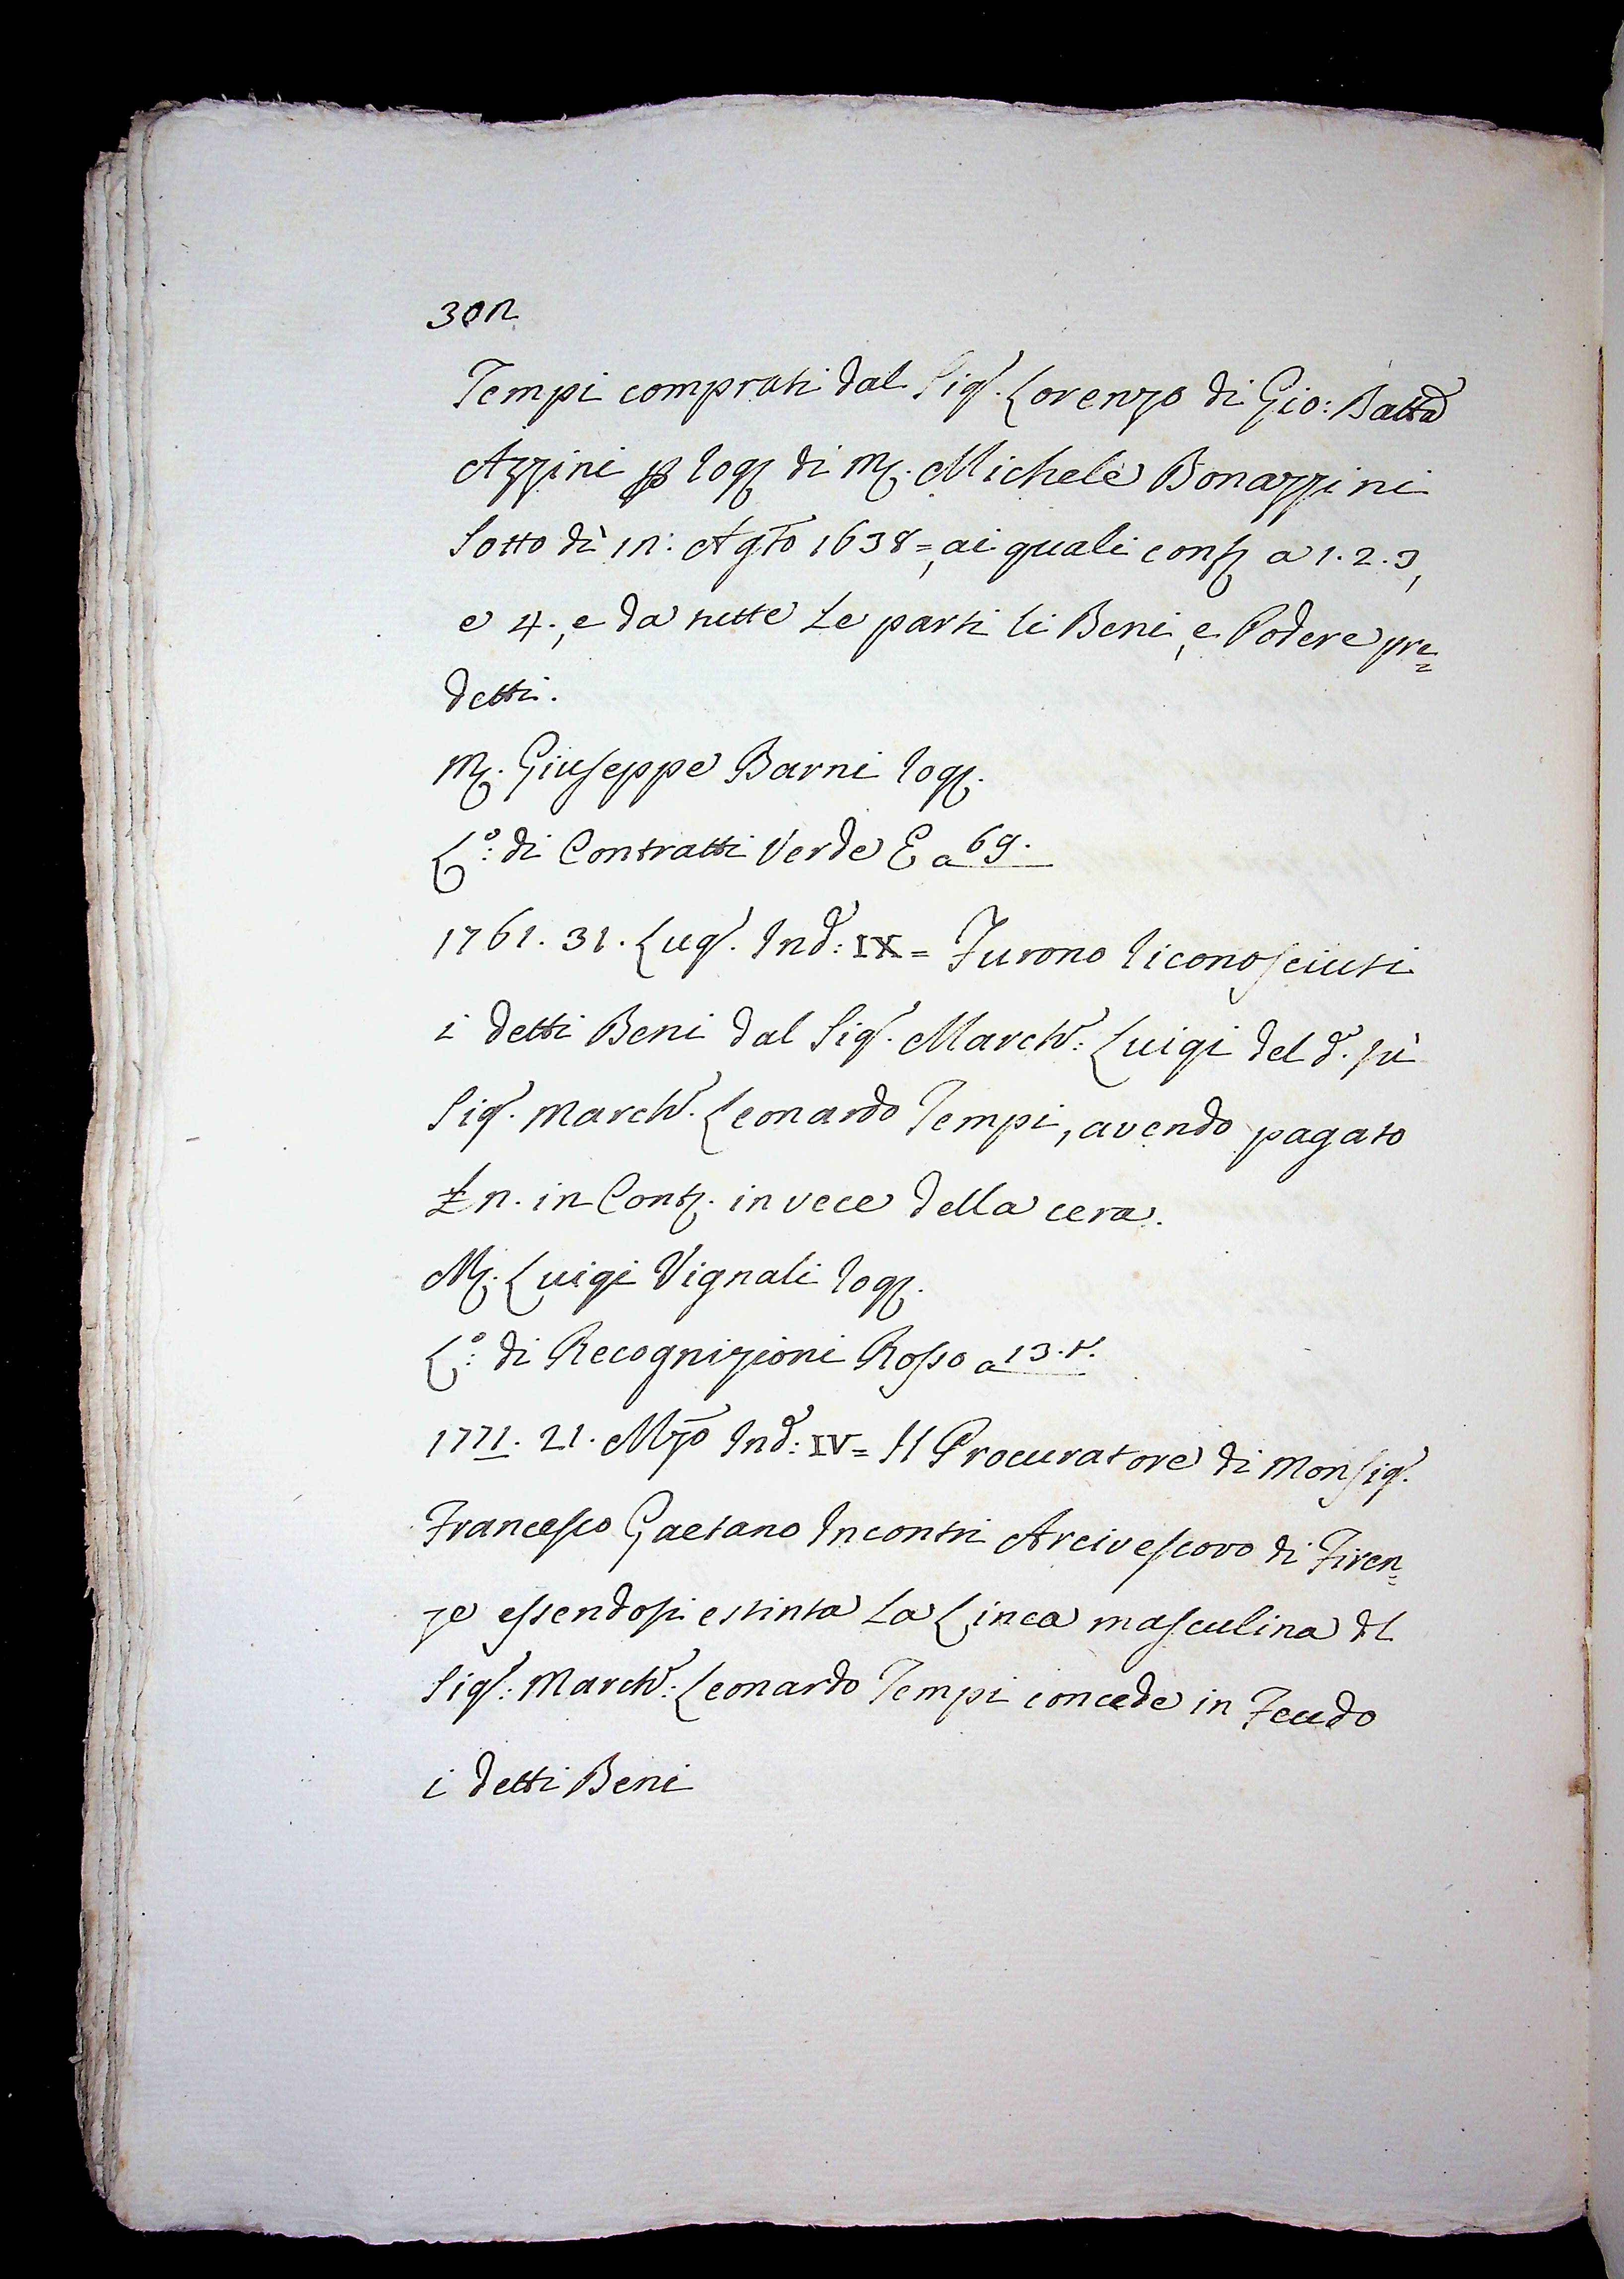 302
Tempi comprati dal Sig.r Lorenzo di Gio: Batt.a
Azzini p rog. di M. Michele Bonazzini
sotto dì 12: Agto 1638=, ai quali conf. a 1. 2. 3,
e 4., e da tutte le parti li Beni, e Podere pre=
detti.
M. Giuseppe Barni rog.
L.o: di Contratti Verde E a 69.
1761. 31. Lug. Ind: IX= Furono riconosciuti
i detti Beni dal Sig.r March.e: Luigi del d. fù
Sig.r March.e Leonardo Tempi, avendo pagato
£ 2. in Cont. in vece della cera.
M. Luigi Vignali rog.
L.o: di Recognizioni Rosso a 13. t.
1771. 21. Mzo Ind: IV= Il Procuratore di Monsig.r
Francesco Gaetano Incontri Arcivescovo di Firen=
ze essendosi estinta la Linea masculina del
Sig.r: March.e: Leonardo Tempi concede in Feudo
i detti Beni